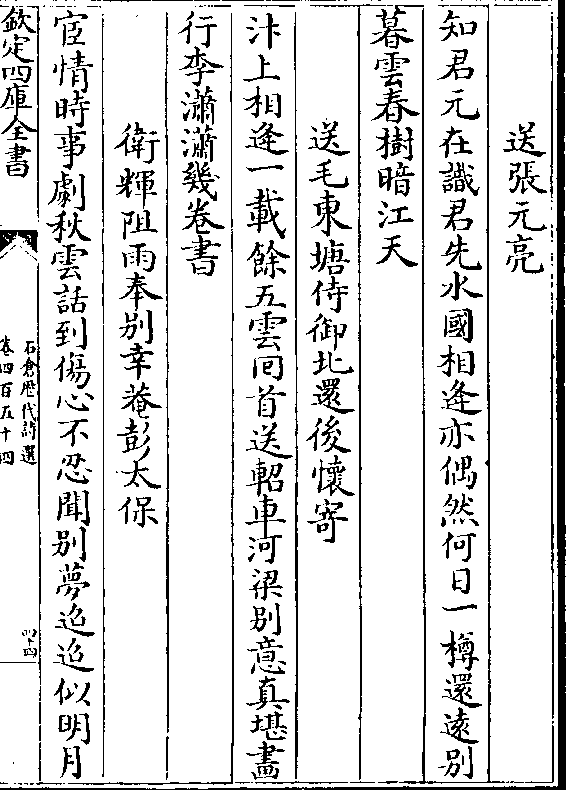 送張元亮
知君元在識君先水國相逢亦偶然何日一樽還遠别
暮雲春樹暗江天
送毛東塘侍御北還後懷寄
汴上相逢一載餘五雲回首送軺車河梁别意真堪畵
行李瀟瀟幾卷書
衛輝阻雨奉别幸菴彭太保
宦情時事劇秋雲話到傷心不忍聞别夢迢迢似明月
欽定四庫全書
石倉歴代詩選
卷四百五十四
四十四